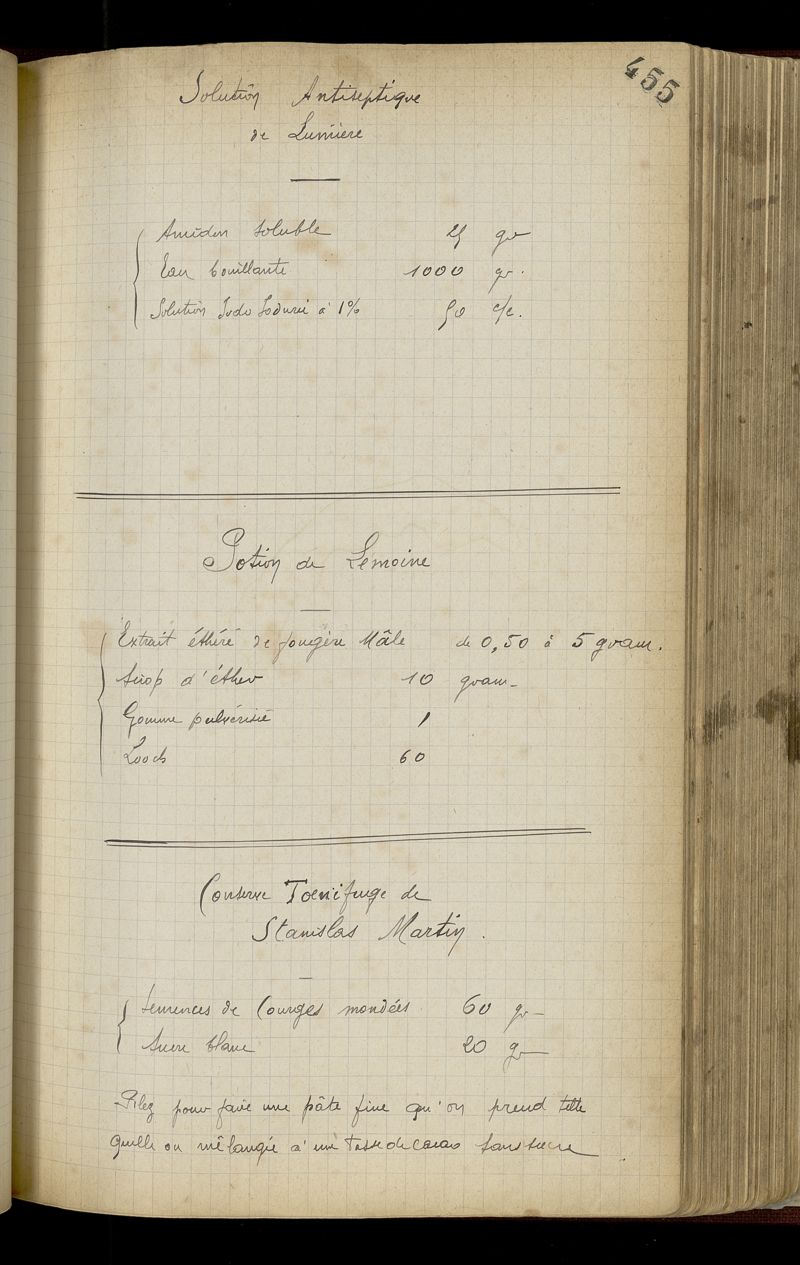 455
Solution Antiseptique
de Lumière
Amidon soluble 25 gr
Eau bouillante 1000 gr.
Solution Iodo Iodurée à 1% 50 c/c.
Potion de Lemoine
Extrait éthéré de fougère Mâle de 0,50 à 5 gram.
Sirop d'éther 10 gram
Gomme pulvérisée 1
Looch 60
Conserve Toenifuge de
Stanislas Martin.
Semences de Courges mondées 60 gr
Sucre blanc 20 gr
Pilez pour faire une pâte fine qu'on prend telle
quelle ou mêlangée à une tasse de cacao sans sucre